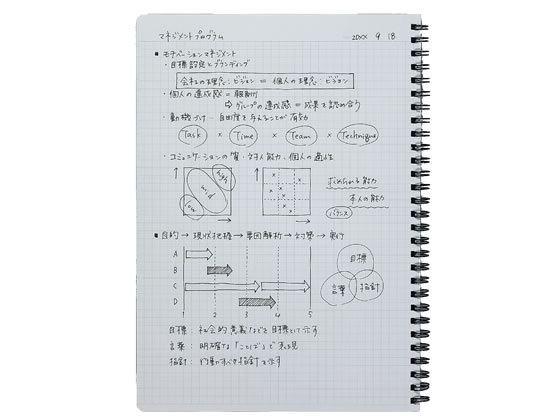 マネジメントプログラム 20XX 9 18
■ モチベーションマネジメント
・目標設定とブランディング
会社の理念・ビジョン = 個人の理念・ビジョン
・個人の達成感 = 報酬
⇨ グループの達成感 = 成果を認め合う
・動機づけ… 自由度を与えることが有効
Task × Time × Team × Technique
・コミュニケーションの質・対人能力・個人の適性
high
mid
low
求められる能力
本人の能力
バランス
■ 目的 → 現状把握 → 要因解析 → 対策 → 実行
A
B
C
D
1 2 3 4 5
目標
言葉 指針
目標: 社会的意義などを目標として示す
言葉: 明確な「ことば」で表現
指針: 行動のすべき指針を示す